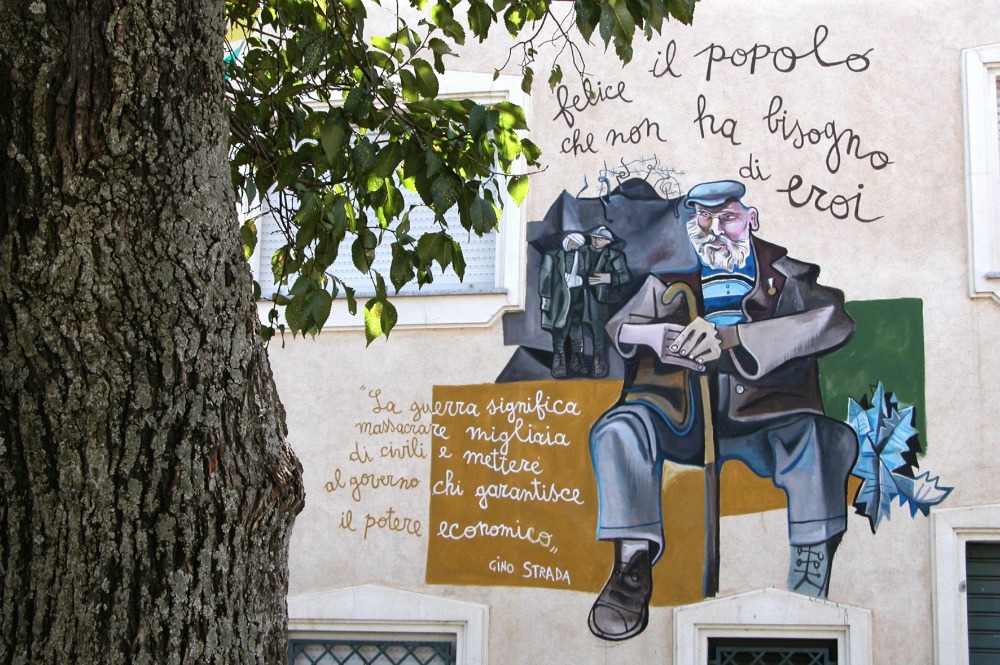 felice il popolo
che non ha bisogno
di eroi
"La guerra significa
massacrare migliaia
di civili e mettere
al governo chi garantisce
il potere economico„
GINO STRADA